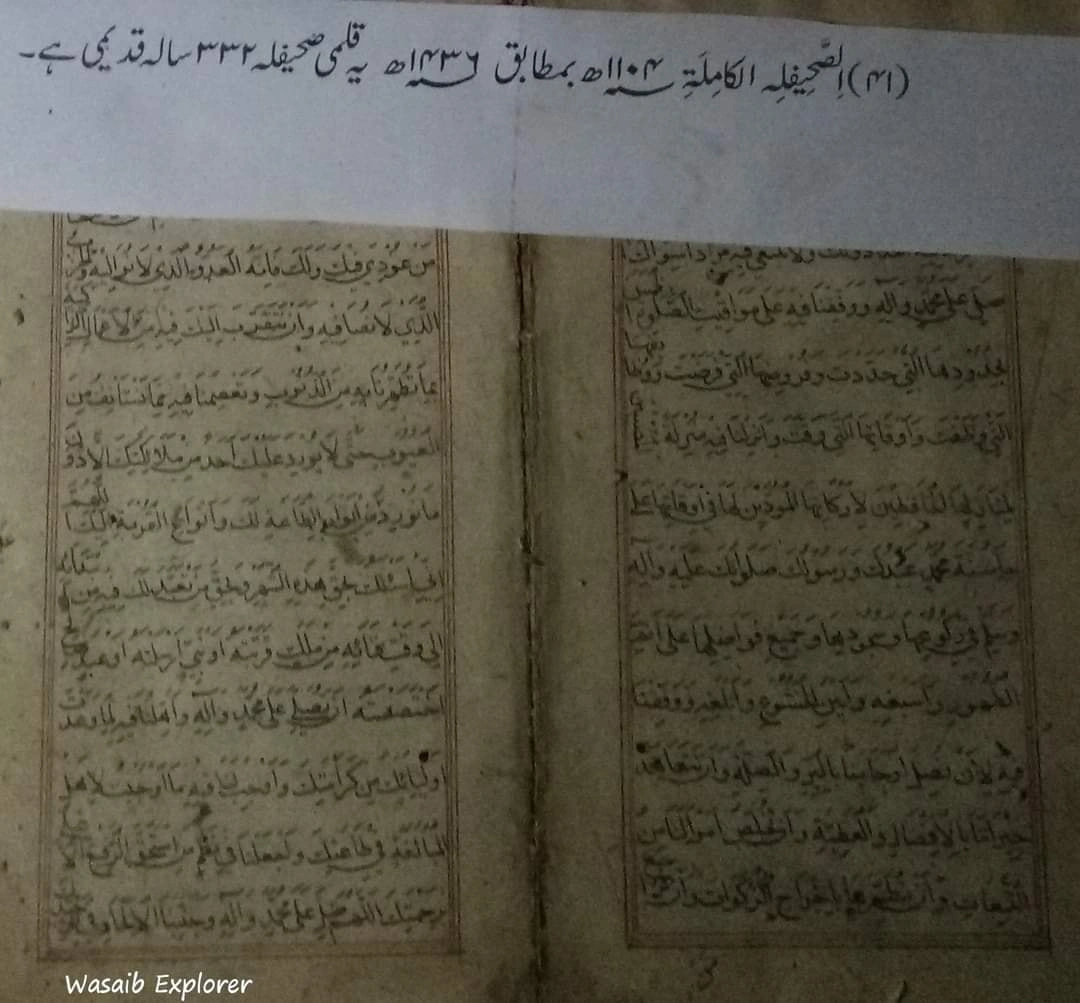 (۴۱) اِلصَّحِیفلِہ الکامِلَۃِ ۱۱۰۴ھ بمطابق ۱۴۳۶ھ یہ قلمی صحیفلہ ۳۳۲ سالہ قدیمی ہے۔
دونك ولا نبتغي فيه مرادا سواك
صل على محمد وآله ووقفنا فيه على مواقيت الصلوات الخمس
بحدودها التي حددت وفروضها التي فرضت ووظائفها
التي وظفت وأوقاتها التي وقت وأنزلنا فيه منزلة
لمنازلها الحافظين لأركانها المؤدين لها في أوقاتها على
ما سنه محمد عبدك ورسولك صلواتك عليه وآله
وسلم في ركوعها وسجودها وجميع فواضلها على أتم
الطهور وأسبغه وأبين الخشوع وأبلغه ووفقنا
فيه لأن نصل أرحامنا بالبر والصلة وأن نتعاهد
جيراننا بالإفضال والعطية وأن نخلص أموالنا من
التبعات وأن نطهرها بإخراج الزكوات وأن
من عودي فيك ولك فإنه العدو الذي لا نواليه والحزب
الذي لا نصافيه وأن نتقرب إليك فيه من الأعمال الزاكية
بما تطهرنا به من الذنوب وتعصمنا فيه مما نستأنف من
العيوب حتى لا يورد عليك أحد من ملائكتك إلا دون
ما نورد من أبواب الطاعة لك وأنواع القربة إليك اللهم
إني أسئلك بحق هذا الشهر وبحق من تعبد لك فيه من ابتدائه
إلى وقت فنائه من ملك قربته أو نبي أرسلته أو عبد صالح
اختصصته أن تصلي على محمد وآله وأهلنا فيه لما وعدت
أولياءك من كرامتك وأوجب لنا فيه ما أوجبت لأهل
المبالغة في طاعتك واجعلنا في نظم من استحق الرفيع الأعلى
برحمتك اللهم صل على محمد وآله وجنبنا الإلحاد في
Wasaib Explorer